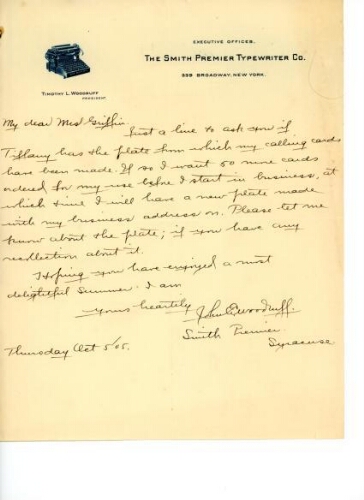 EXECUTIVE OFFICES.
THE SMITH PREMIER TYPEWRITER CO.
339 BROADWAY, NEW YORK.
TIMOTHY L. WOODRUFF
PRESIDENT.
My dear Mrs Griffin.
Just a line to ask you if
Tiffany has the plate from which my calling cards
have been made. If so I want 50 more cards
ordered for my use before I start in business, at
which time I will have a new plate made
with my business address on. Please let me
know about the plate; if you have any
recollection about it.
Hoping you have enjoyed a most
delightful summer. I am
Yours heartily
John E. Woodruff.
Smith Premier
Syracuse
Thursday Oct 5/05.